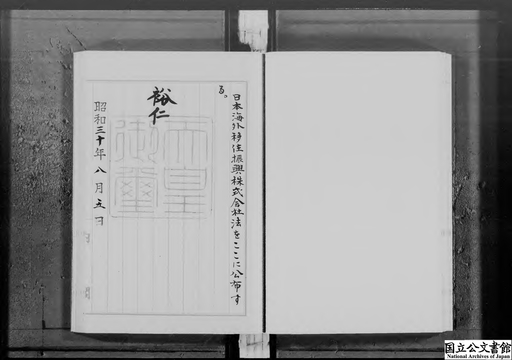 日本海外移住振興株式会社法をここに公布す
る。
裕仁
天皇
御璽
昭和三十年八月五日
国立公文書館
National Archives of Japan